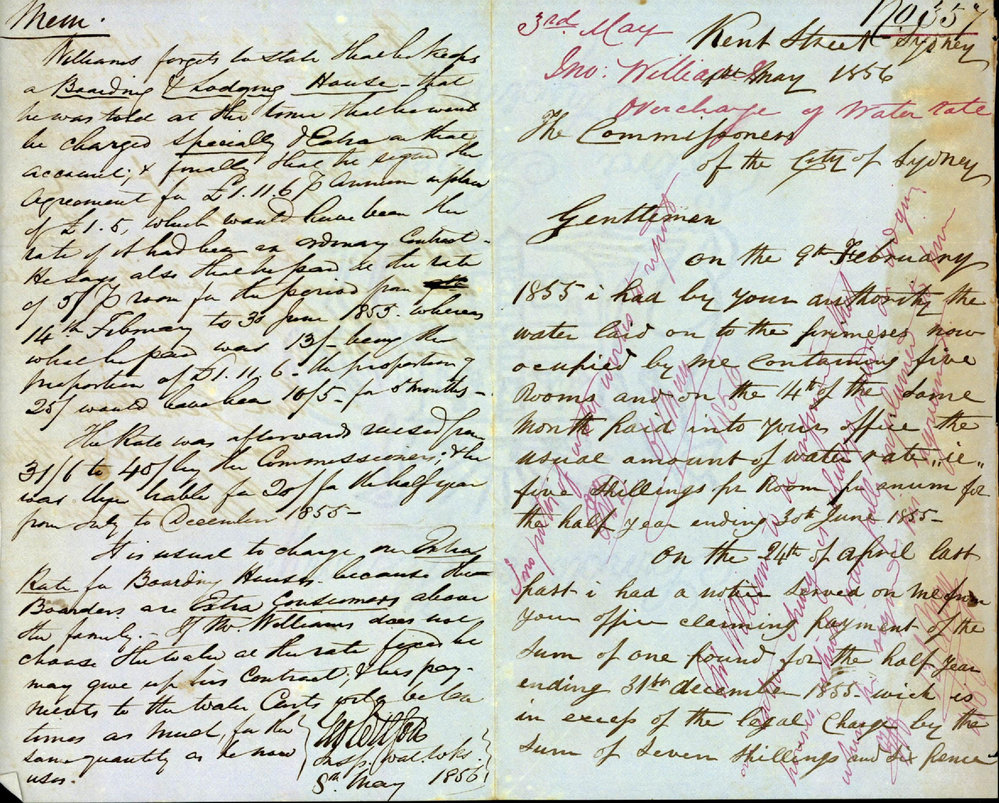 Mem:
Williams forgets to state that he keeps
a Boarding & Lodging House - that
he was told at the time that he would
be charged Specially & Extra on that
account; & finally that he signed the
Agreement for £1.11.6 P annum in place
of £1.5, which would have been the
rate if it had been an ordinary Contract -
He says also that he paid at the rate
of 5/ P room for the period from
14th February to 30 June 1855. whereas
what he paid was 13/- being the
proportion of £1.11.6 - the proportion of
25/ would have been 10/5 - for 5 months -
The Rate was afterwards raised from
31/6 to 40/ by the Commissioners; & he
was then liable for 20/ for the half year
from July to December 1855 -
It is usual to charge one Extra
Rate for Boarding Houses because the
Boarders are Extra Consumers above
the family. - If Mr. Williams does not
choose the water at the rate fixed he
may give up his Contract; & his pay-
ments to the Water Carts will be ten
times as much, for the
same quantity as he now
uses.
Insp. Wat. Wks.
8th May 1856
No 357
3rd May
Jno: Williams
Overcharge of Water rate
Kent Street Sydney
May 1856
The Commissoners
of the City of Sydney
Gentlemen
on the 9th February
1855 i had by your authority the
water laid on to the premeses now
ocupied by me Containing five
Rooms and on the 14th of the Same
Month Paid into Yours office the
usual amount of water rate „ie„
five Shillings pr Room pr anum for
the half Year ending 30th June 1855 -
On the 24th of April last
past i had a notice Served on me from
Your office claiming payment of the
Sum of one pound for the half Year
ending 31st december 1855 wick is
in excess of the Legal Charge by the
Sum of Seven Shillings and six pence
Inspector of Water Works to report